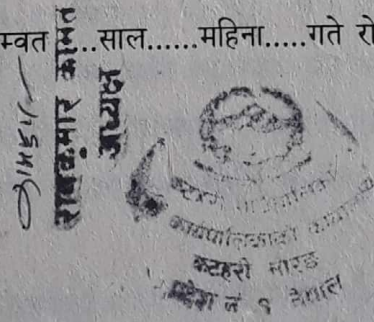 म्वत ....साल......महिना.....गते रो
राजकुमार कामत
अध्यक्ष
कार्यपालिकाको
कटहरी मोरङ
प्रदेश नं १ नेपाल